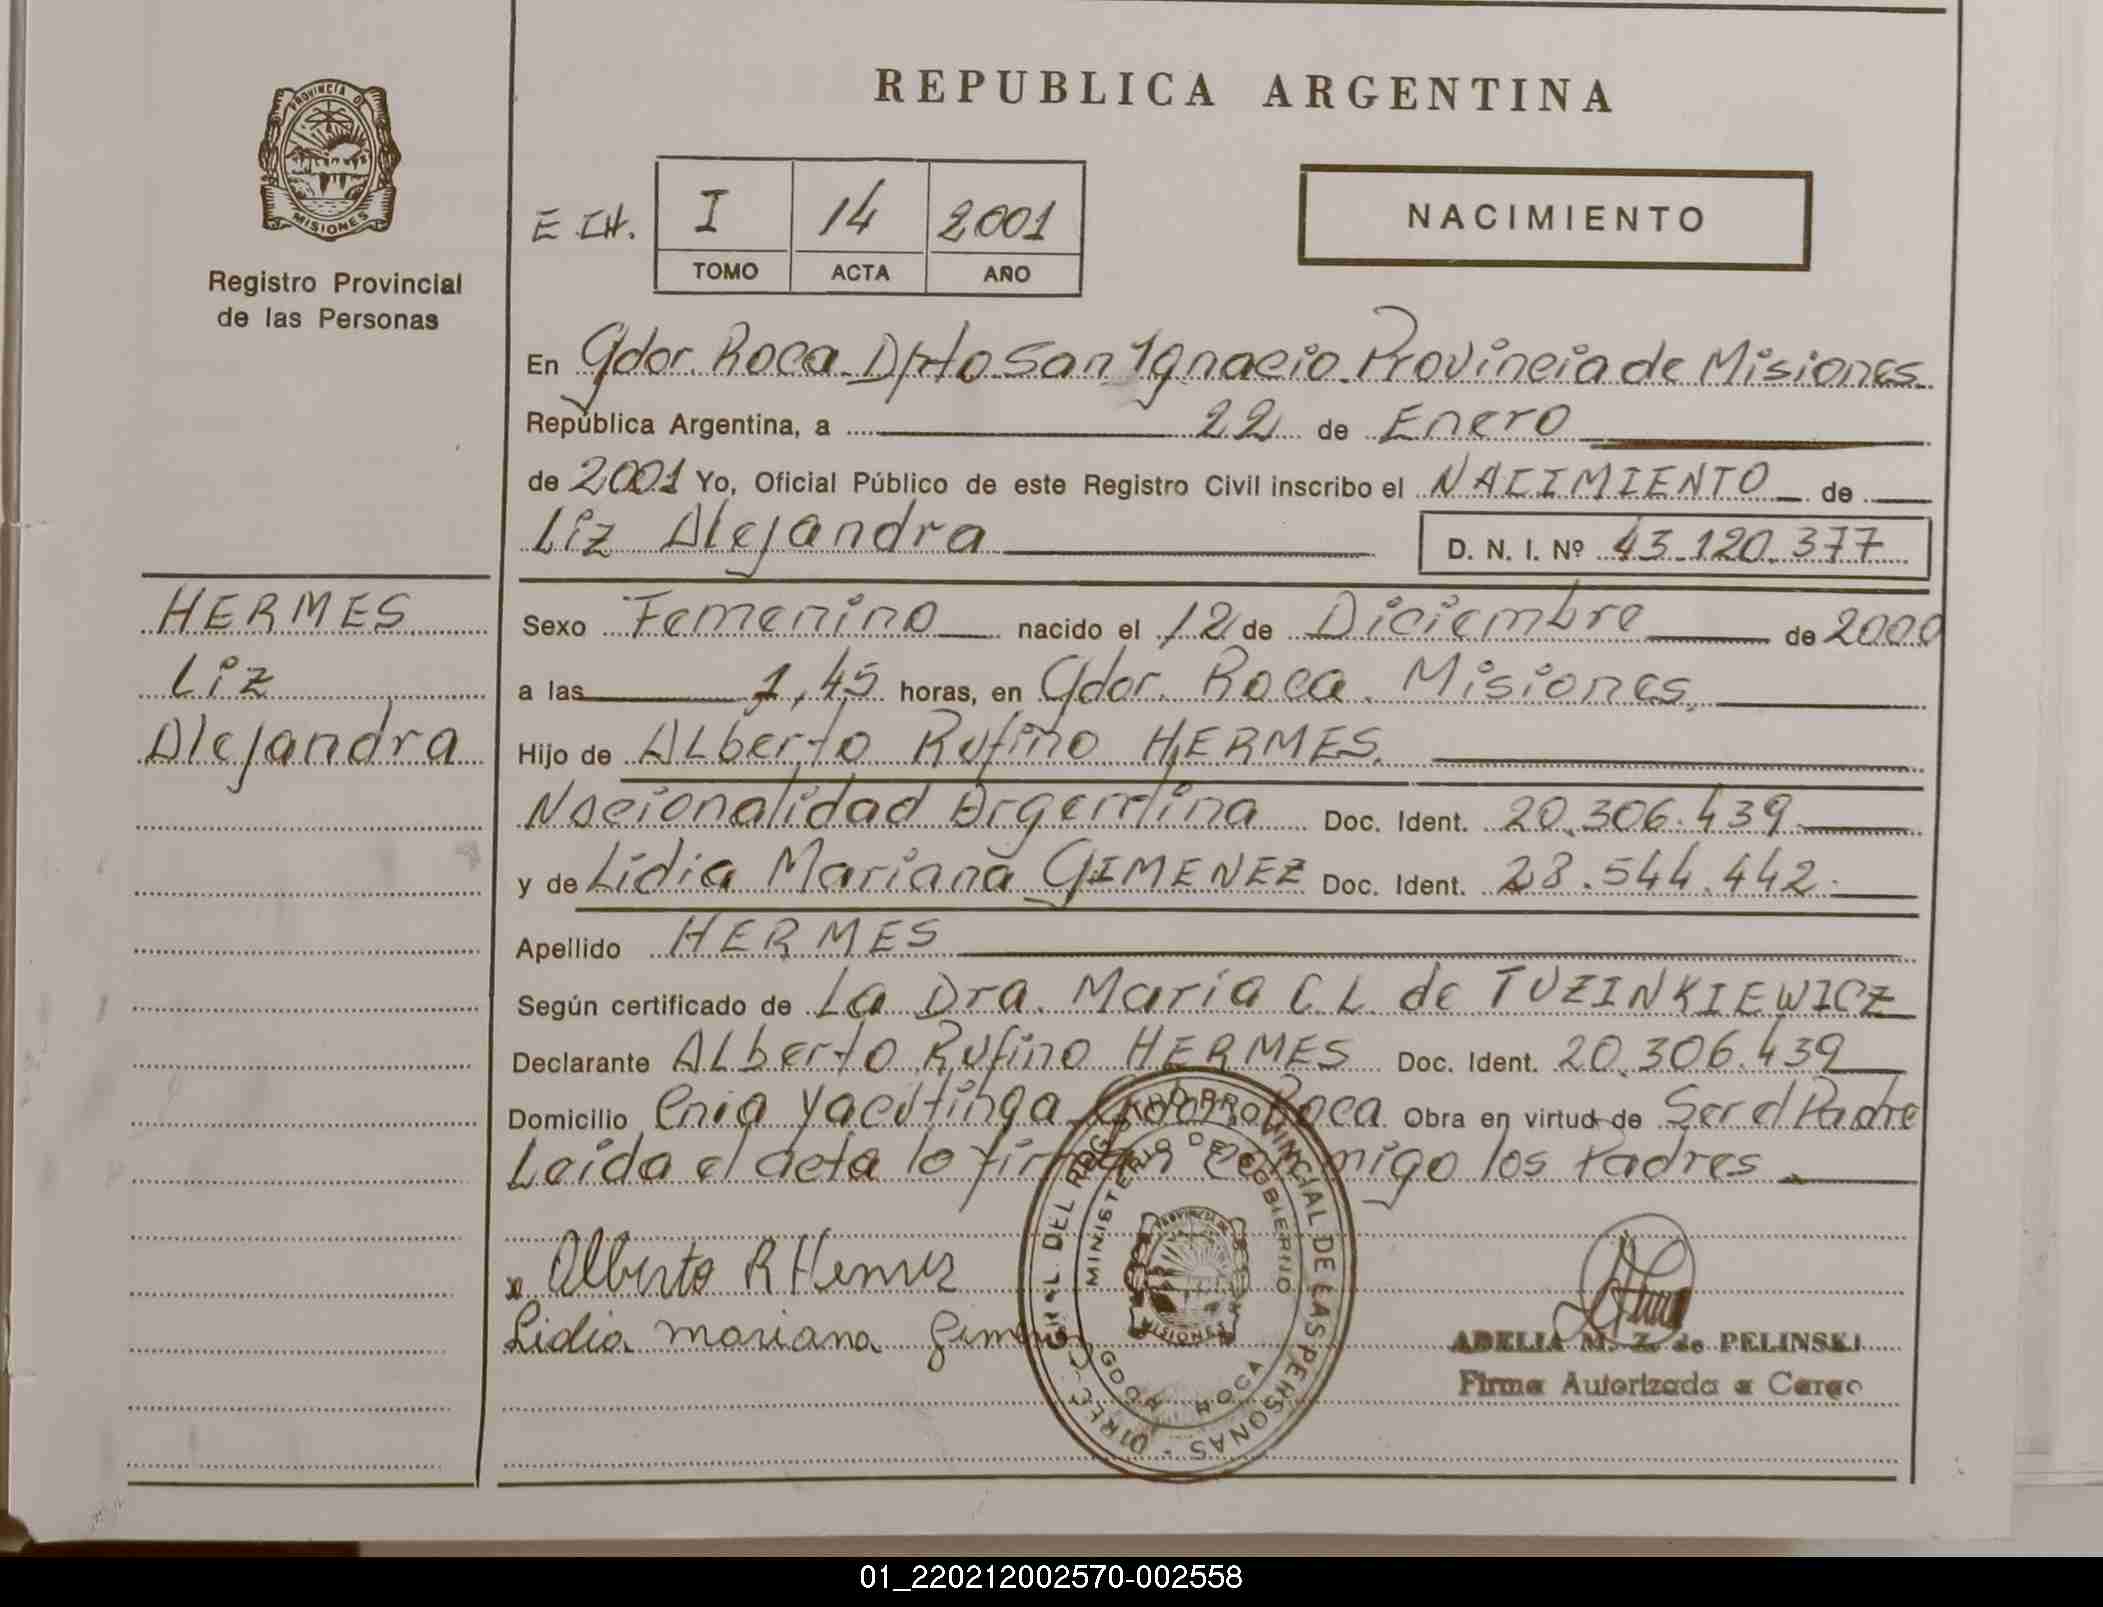 REPUBLICA ARGENTINA
PROVINCIA DE
MISIONES
Registro Provincial
de las Personas
E.CH.
I 14 2001
TOMO ACTA AÑO
NACIMIENTO
En Gdor. Roca Dpto San Ignacio Provincia de Misiones
República Argentina, a 22 de Enero
de 2001 Yo, Oficial Público de este Registro Civil inscribo el NACIMIENTO de
Liz Alejandra D. N. I. Nº 43.120.377
HERMES
Liz
Alejandra
Sexo Femenino nacido el 12 de Diciembre de 2000
a las 1,45 horas, en Gdor. Roca. Misiones,
Hijo de Alberto Rufino HERMES.
Nacionalidad Argentina Doc. Ident. 20.306.439
y de Lidia Mariana GIMENEZ Doc. Ident. 28.544.442
Apellido HERMES
Según certificado de La Dra. Maria C L de TUZINKIEWICZ
Declarante Alberto Rufino HERMES Doc. Ident. 20.306.439
Domicilio Yacutinga Gdor. Roca Obra en virtud de Ser el Padre
Leida el acta lo firman conmigo los Padres
Alberto R Hermes
Lidia mariana
MINISTERIO DE GOBIERNO
PROVINCIA DE
MISIONES
GDOR. ROCA
ADELIA M. Z. de PELINSKI
Firma Autorizada a Cargo
01_220212002570-002558